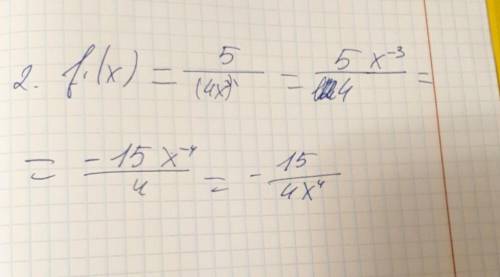 2. f'(x) = 5/(4x³)' = 5x⁻³/4 =
= -15x⁻⁴/4 = -15/4x⁴